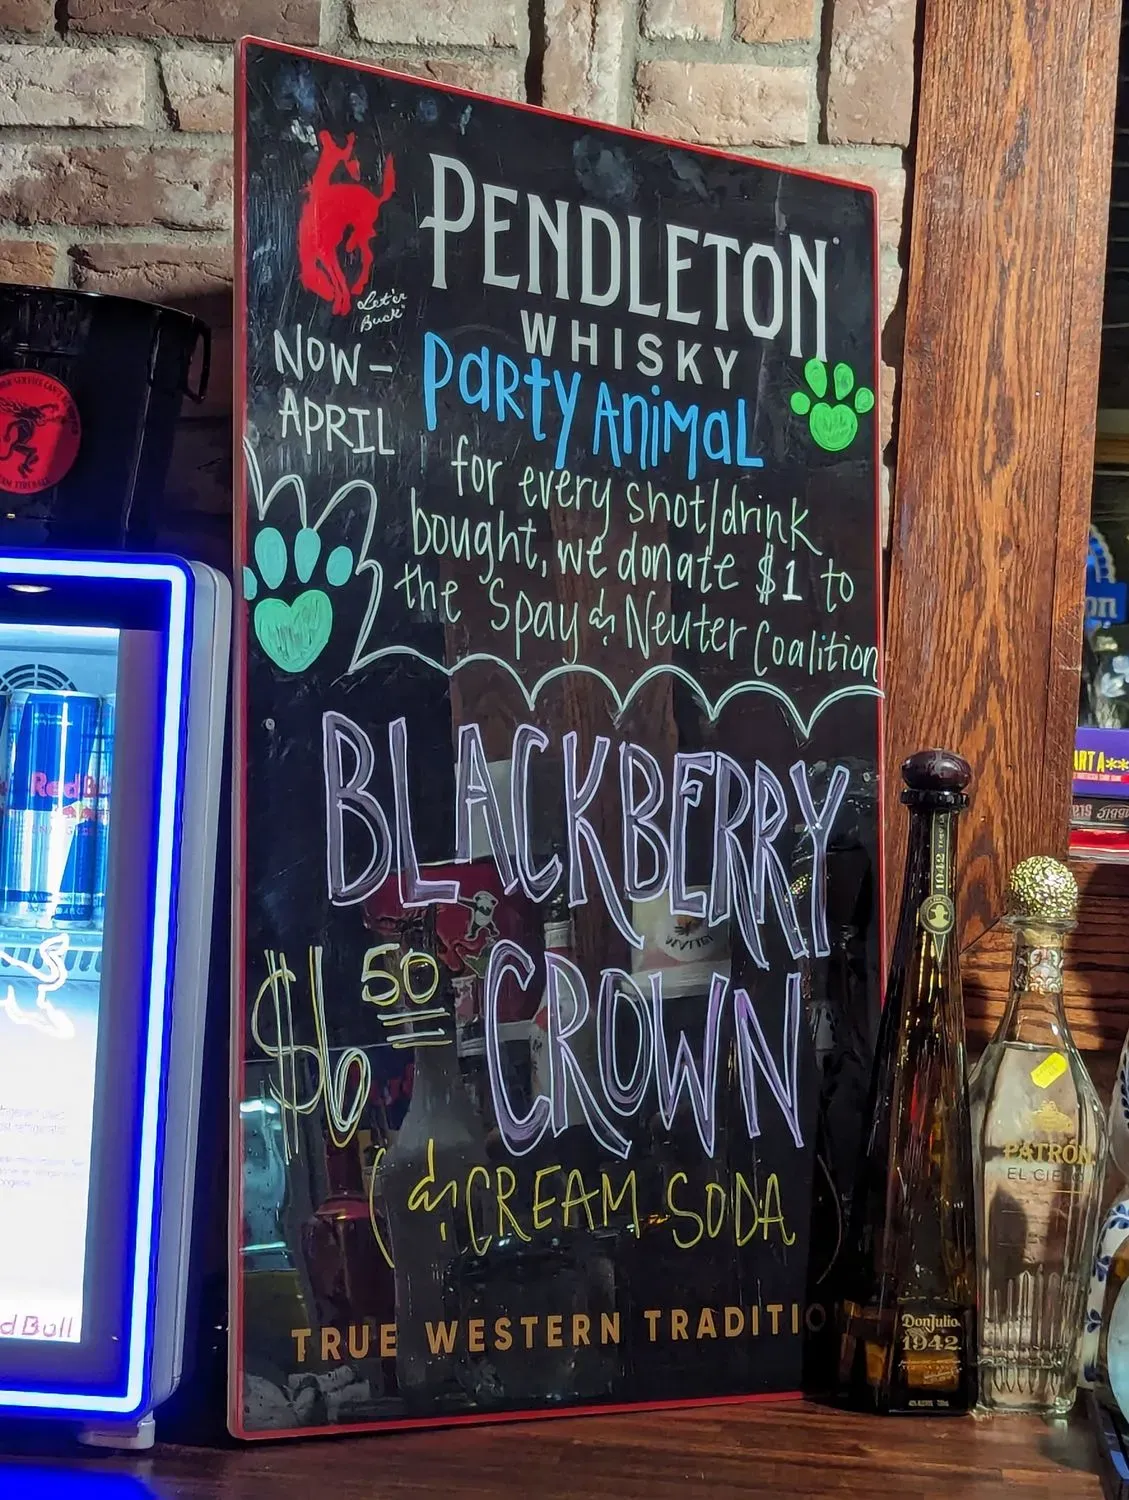 PENDLETON
WHISKY
Let'er
Buck
NOW –
APRIL
Party Animal
for every shot/drink
bought, we donate $1 to
the Spay & Neuter Coalition
BLACKBERRY
$6 50
CROWN
(& CREAM SODA)
TRUE WESTERN TRADITIO
Red Bull
d Bull
1942
DonJulio
1942
PATRÓN
EL CIELO
ART A**